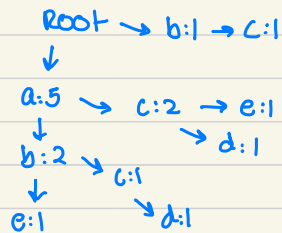 Root → b:1 → c:1
a:5 → c:2 → e:1
d:1
b:2 → c:1
e:1 d:1